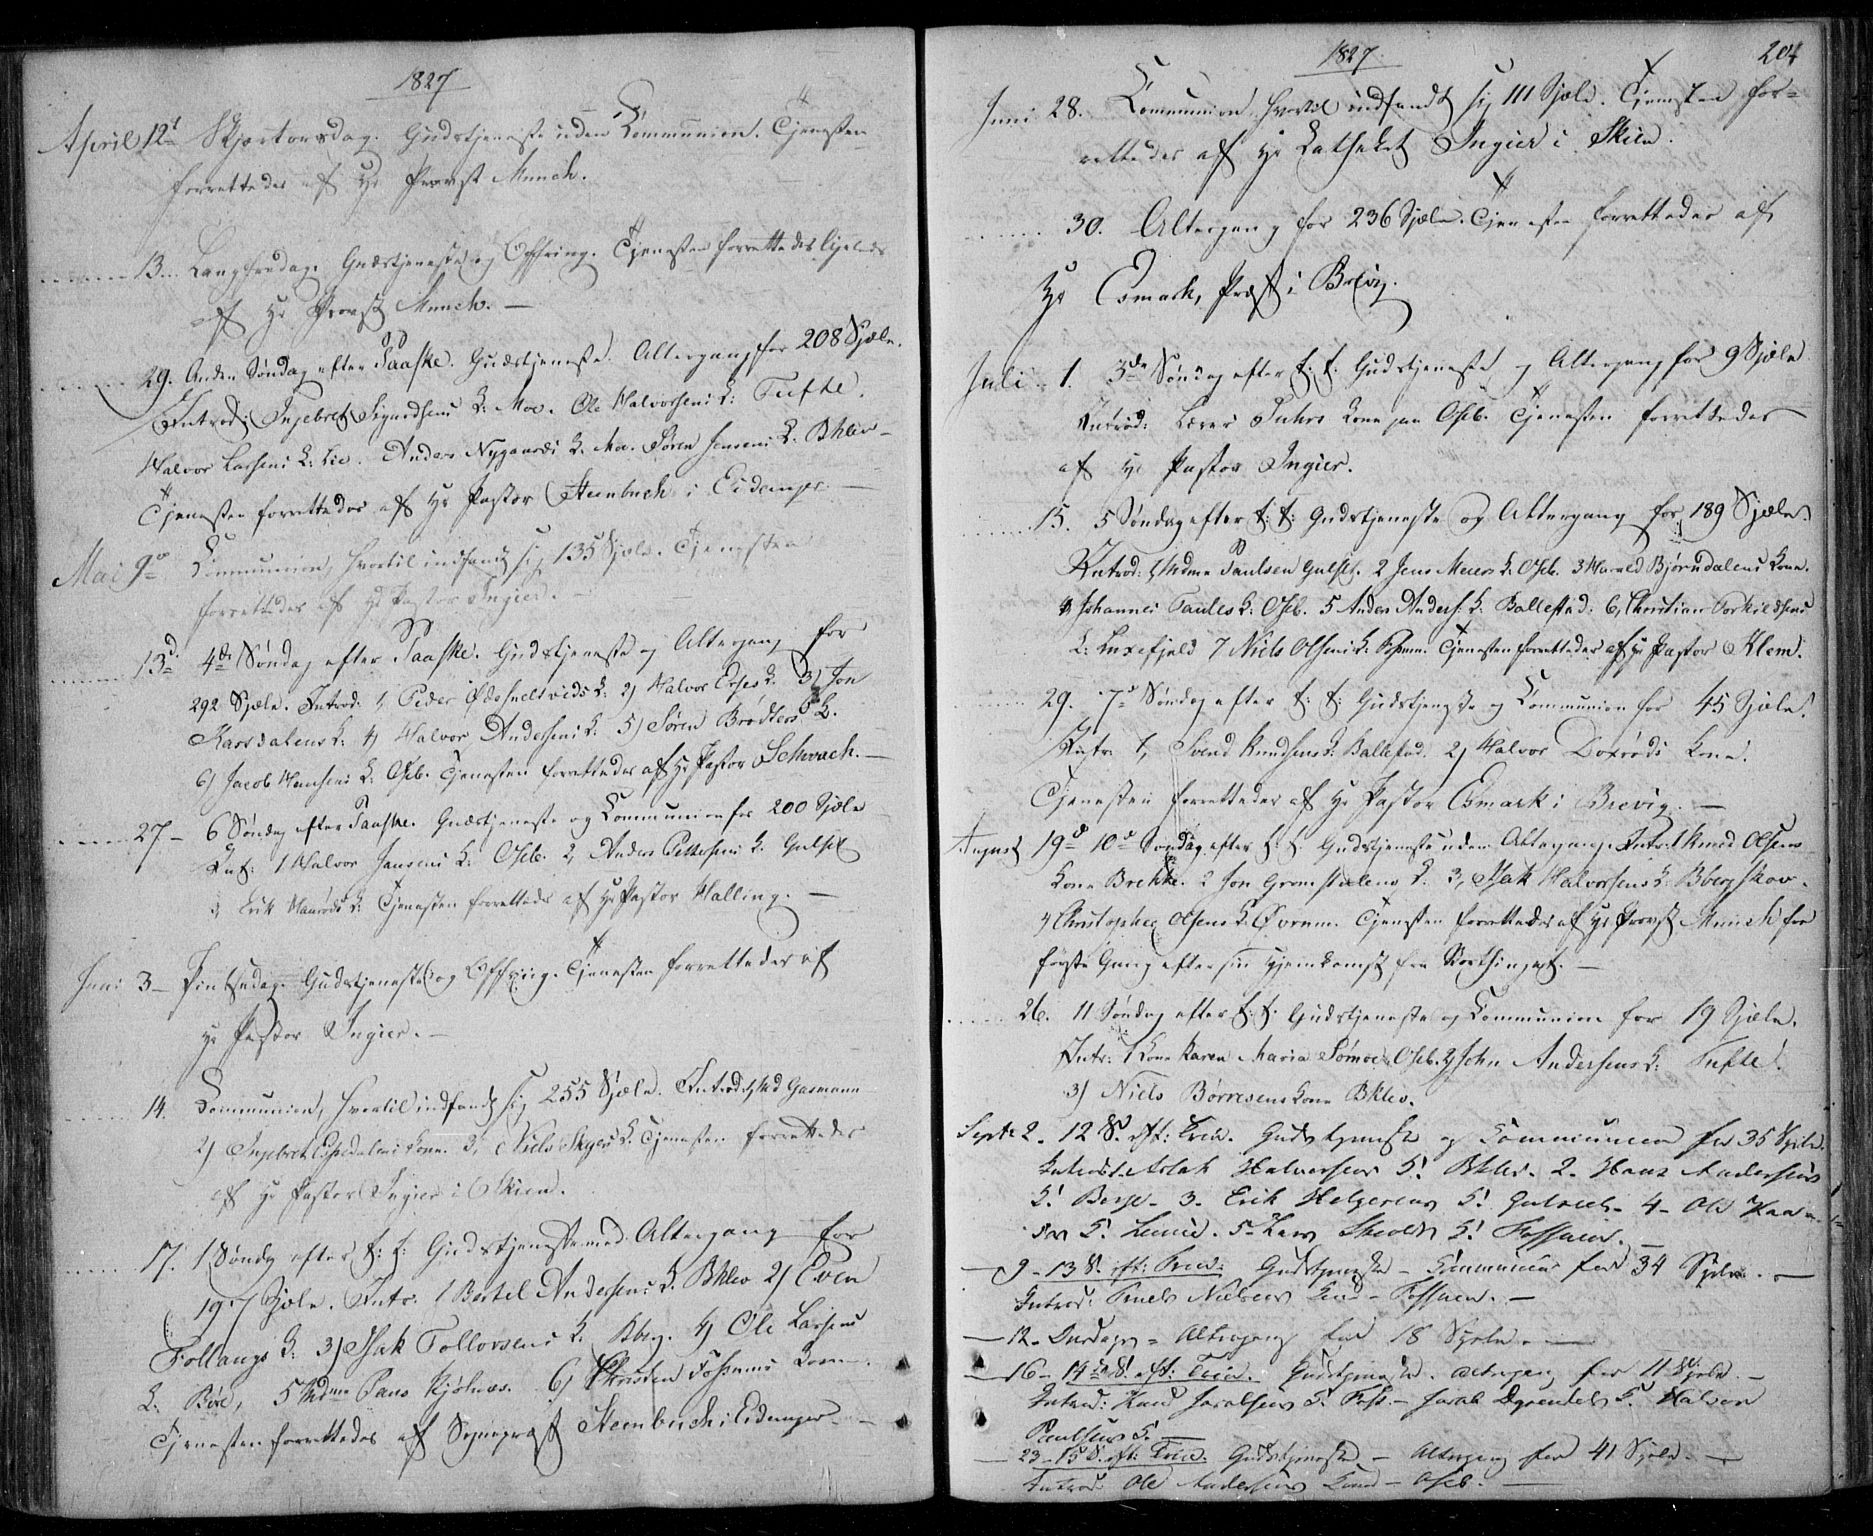 1827
April 12te Skjærtorsdag. Gudstjeneste uden Communion. Tjenesten
forrettedes af Hr Provst Munch.
13. Langfredag. Gudstjeneste og Offring. Tjenesten forrettedes ligeledes
af Hr Provst Munch. —
29. Anden Søndag efter Paaske. Gudstjeneste. Altergang for 208 Sjæle.
Introd: Ingebret Sigurdsens K. Moe. Ole Halvorsens K: Tufte.
Halvor Larsens K: Lie. Anders Nygaards K. Moe. Søren Jensens K. Bklev —
Tjenesten forrettedes af Hr Pastor Steenbuch i Eidanger. —
Mai 9de Communion, hvortil indfandt sig 135 Sjæle. Tjenesten
forrettedes af Hr Pastor Ingier. —
13de 4de Søndag efter Paaske. Gudstjeneste og Altergang for
292 Sjæle. Introd: 1) Peder K: 2) Halvor K. 3) Jon
K: 4) Halvor Andersens K: 5) Søren Brødløs K.
6) Jacob Hansens K. Oseb. Tjenesten forrettedes af Hr Pastor Schwach. —
27 — 6 Søndag efter Paaske. Gudstjeneste og Communion for 200 Sjæle
Int: 1 Halvor Jansens K. Oseb. 2, Anders Pettersens K. Gulset
3, Erik K: Tjenesten forrettedes af Hr Pastor Halling. —
Juni 3 — Pintsedag. Gudstjeneste og Offring. Tjenesten forrettedes af
Hr Pastor Ingier. —
14. Communion, hvortil indfandt sig 255 Sjæle. Introd: 1, Md Gasmann
2) Ingebret Kone. 3, Niels K. Tjenesten forrettedes
af Hr Pastor Ingier i Skien.
17. 1 Søndag efter t: f: Gudstjeneste med Altergang for
197 Sjæle. Intr. 1 Bertel Andersens K. Bklev 2) Even
Follaugs K: 3) Isak Tollovsens K. Bberg. 4) Ole Larsens
K. Böe, 5 Mdme Paus Kjølnæs. 6) Thorsten Fossums Kone.
Tjenesten forrettedes af Sognepræst Steenbuch i Eidanger. —
1827 204
Juni 28. Communion, hvortil indfandt sig 111 Sjæle. Tjenesten for=
rettedes af Hr Catheket Ingier i Skien.
30. Altergang for 236 Sjæle. Tjenesten forrettedes af
Hr Esmark, Præst i Brevig.
Juli 1. 3die Søndag efter t. f. Gudstjeneste og Altergang for 9 Sjæle
Introd: Lærer Kone Oseb. Tjenesten forrettedes
af Hr Pastor Ingier.
15. 5 Søndag efter t: f: Gudstjeneste og Altergang for 189 Sjæle.
Introd: 1, Mdme Paulsen Gulset. 2 Jens Meiers K. Oseb. 3 Harald Bjørndalens Kone.
4 Johannes K. Oseb. 5 Anders Anders: K. Ballestad. 6, Christian Torkildsens
K. Luxefjeld 7 Niels Olsens K. Tjenesten forrettedes af Hr Pastor Klem.
29. 7de Søndag efter t. f: Gudstjeneste og Communion for 45 Sjæle.
Intr: 1, Svend Knudsens K. Ballestad. 2) Halvor Kone.
Tjenesten forrettedes af Hr Pastor Esmark i Brevig. —
August 19de 10de Søndag efter t. f. Gudstjeneste uden Altergang. Introd 1 Knud Olsens
Kone Brekke. 2 Jon Gromstulens K. 3, Isak Halvorsens K. Bberg skov.
4 Christopher Olsens K. Øvrum. Tjenesten forrettedes af Hr Provst Munch for
første Gang efter sin Hjemkomst fra Storthinget. —
26. 11 Søndag efter t. f. Gudstjeneste og Communion for 19 Sjæle.
Intr: 1 Kone Karen Maria Oseb. 2) John Andersens K. Tufte.
3) Niels Børresens Kone Bklev.
Septr 2. 12 S. eft: Trin. Gudstjeneste og Communion for 35 Sjæle.
Introd. 1. Aslak Halvorsens K! Bklev. 2. Hans Andersens
K! Berge — 3. Erik Helgesens K! Gulset — 4 — Ole
K! — 5 — K! Fossum. —
9 — 13 S. eft: Trin: Gudstjeneste — Communion for 34 Sjæle. —
Introd: Nielsens Kone — Fossum. —
12 — Onsdag = Altergang for 18 Sjæle. —
16 — 14de S. eft: Trin. Gudstjeneste. Altergang for 11 Sjæle. —
Introd: Jacobsens K. Foss. — Jacob K. Halvor
Paulsens K. —
23 — 15 S. eft: Trin. Gudstjeneste — Altergang for 41 Sjæle. —
Introd. Ole Andersens Kone — Oseb. —